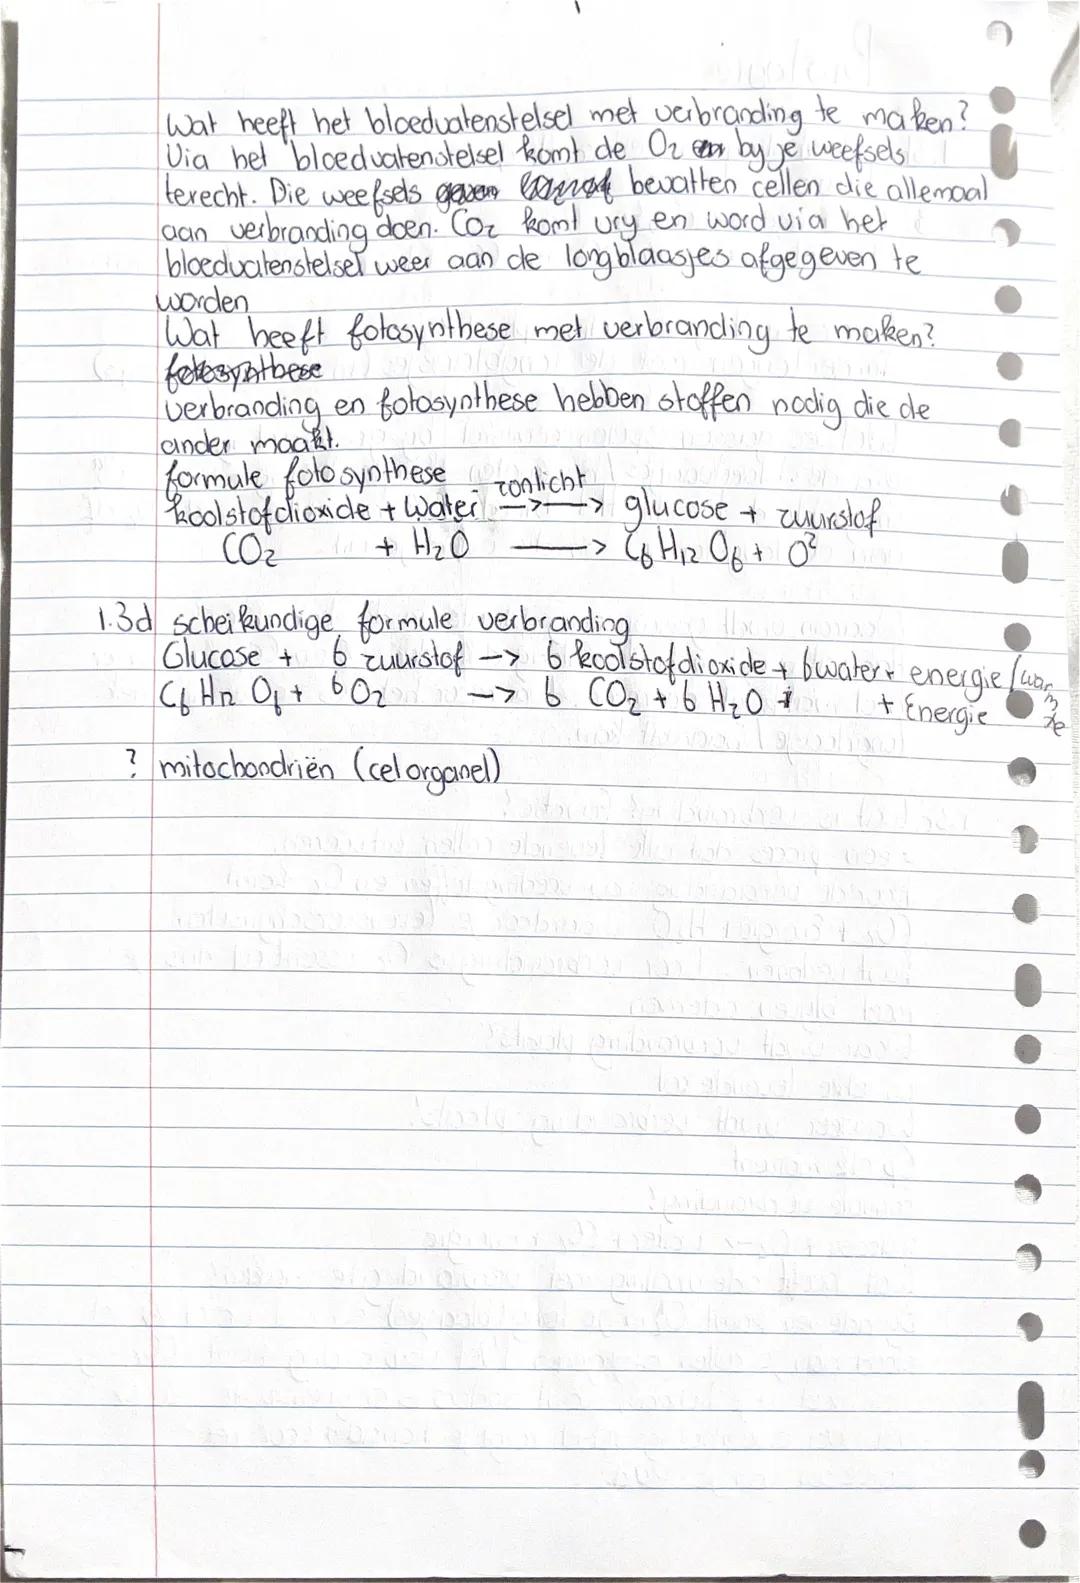 Wat heeft het bloedvatenstelsel met verbranding te maken?
Via het bloedvatenstelsel komt de O₂ by je weefsels
terecht. Die weefsels bevatten cellen die allemaal
aan verbranding doen. CO₂ komt vry en word via het
bloedvatenstelsel weer aan de longblaasjes afgegeven te
worden
Wat heeft fotosynthese met verbranding te maken?
fotosynthese
verbranding en fotosynthese hebben stoffen nodig die de
ander maakt.
formule fotosynthese
zonlicht
koolstofdioxide + Water →→ glucose + zuurstof
CO₂ + H₂O → C₆H₁₂O₆ + O²
1.3d scheikundige formule verbranding
Glucose + 6 zuurstof → 6 koolstofdioxide + 6 water + energie/warmte
C₆H₁₂O₆ + 6O₂ → 6 CO₂ + 6 H₂O + Energie
? mitochondriën (celorganel)